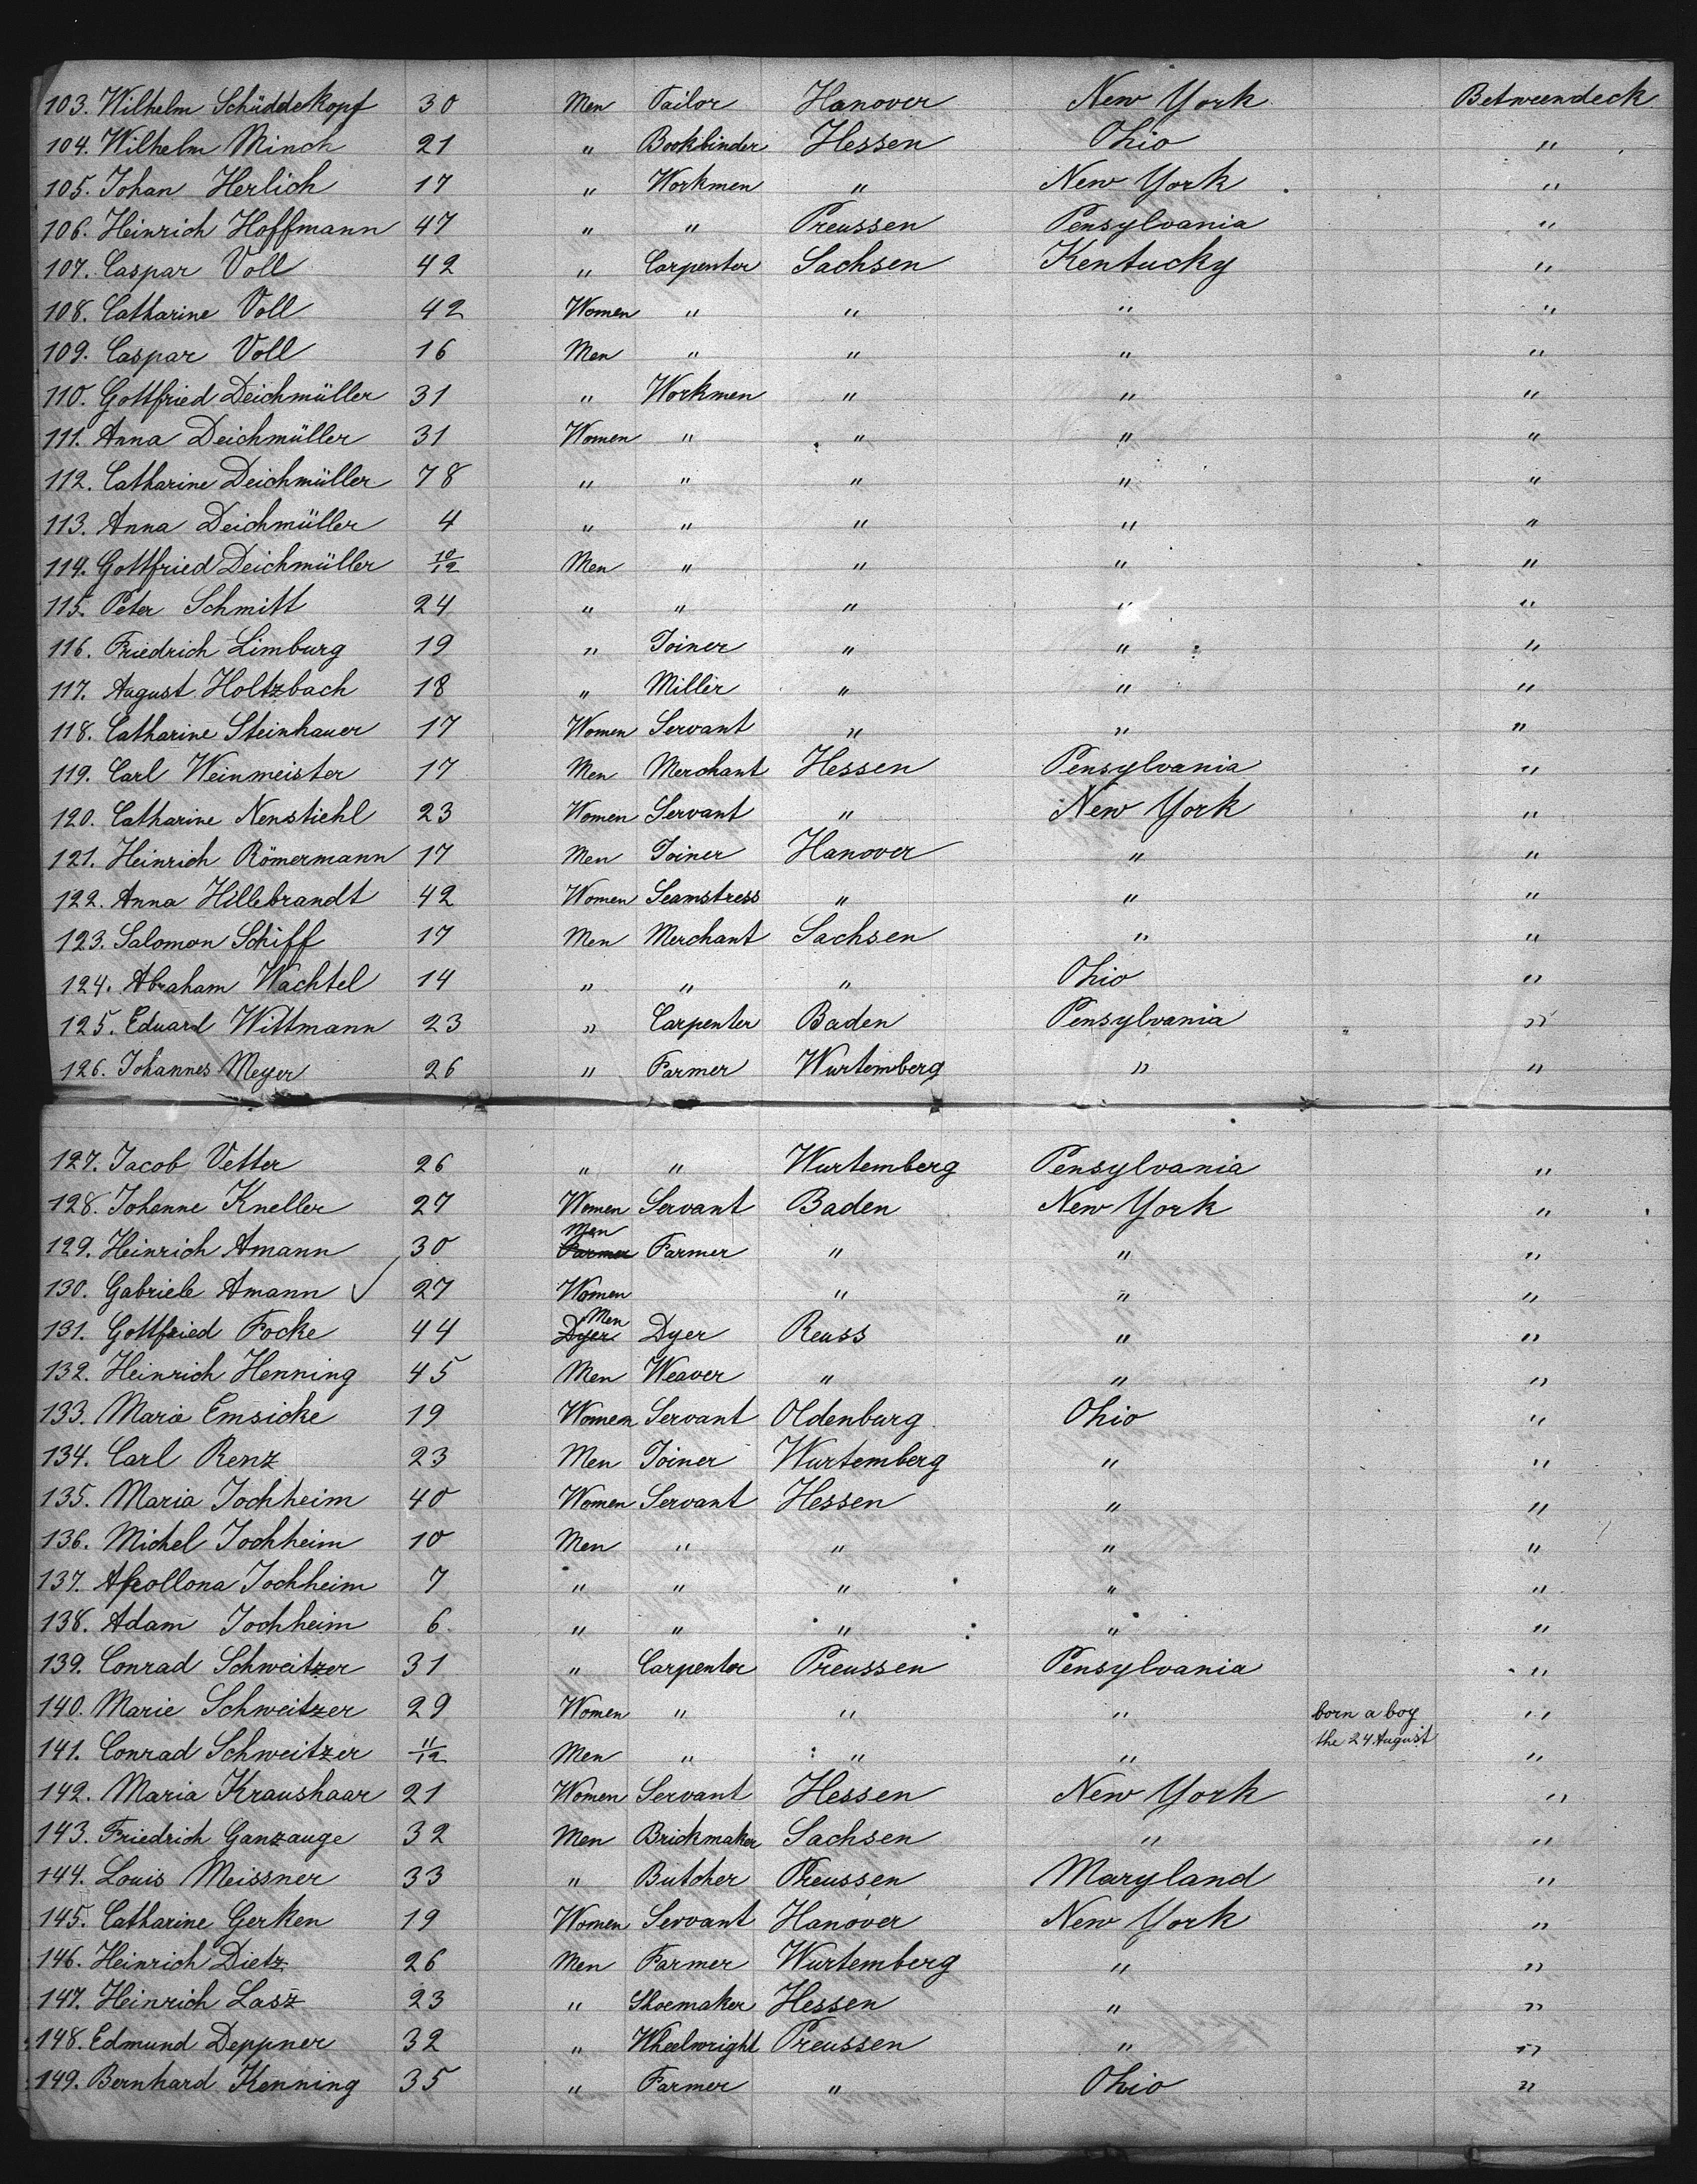 103. Wilhelm Schüddekopf 30 Men Tailor Hanover New York Betweendeck
104. Wilhelm Minch 21 " Bookbinder Hessen Ohio "
105. Johan Herlich 17 " Workmen " New York "
106. Heinrich Hoffmann 47 " " Preussen Pensylvania "
107. Caspar Voll 42 " Carpenter Sachsen Kentucky "
108. Catharine Voll 42 Women " " " "
109. Caspar Voll 16 Men " " " "
110. Gottfried Deichmüller 31 " Workmen " " "
111. Anna Deichmüller 31 Women " " " "
112. Catharine Deichmüller 78 " " " " "
113. Anna Deichmüller 4 " " " " "
114. Gottfried Deichmüller 10/12 Men " " " "
115. Peter Schmitt 24 " " " " "
116. Friedrich Limburg 19 " Joiner " " "
117. August Holtzbach 18 " Miller " " "
118. Catharine Steinhauer 17 Women Servant " " "
119. Carl Weinmeister 17 Men Merchant Hessen Pensylvania "
120. Catharine Nenstiehl 23 Women Servant " New York "
121. Heinrich Römermann 17 Men Joiner Hanover " "
122. Anna Hillebrandt 42 Women Seamstress " " "
123. Salomon Schiff 17 Men Merchant Sachsen " "
124. Abraham Wachtel 14 " " " Ohio "
125. Eduard Wittmann 23 " Carpenter Baden Pensylvania "
126. Johannes Meyer 26 " Farmer Wurtemberg " "
127. Jacob Vetter 26 " " Wurtemberg Pensylvania "
128. Johanne Kneller 27 Women Servant Baden New York "
129. Heinrich Amann 30 Farmer Men Farmer " " "
130. Gabriele Amann ✓ 27 Women " " "
131. Gottfried Focke 44 Dyer Men Dyer Reuss " "
132. Heinrich Henning 45 Men Weaver " " "
133. Marie Emsicke 19 Women Servant Oldenburg Ohio "
134. Carl Renz 23 Men Joiner Wurtemberg " "
135. Maria Jochheim 40 Women Servant Hessen " "
136. Michel Jochheim 10 Men " " " "
137. Apollona Jochheim 7 " " " " "
138. Adam Jochheim 6 " " " " "
139. Conrad Schweitzer 31 " Carpenter Preussen Pensylvania "
140. Marie Schweitzer 29 Women " " " born a boy "
the 24 August
141. Conrad Schweitzer 11/12 Men " " " "
142. Maria Kraushaar 21 Women Servant Hessen New York "
143. Friedrich Ganzauge 32 Men Brickmaker Sachsen " "
144. Louis Meissner 33 " Butcher Preussen Maryland "
145. Catharine Gerken 19 Women Servant Hanover New York "
146. Heinrich Dietz 26 Men Farmer Wurtemberg " "
147. Heinrich Lasz 23 " Shoemaker Hessen " "
148. Edmund Deppner 32 " Wheelwright Preussen " "
149. Bernhard Kenning 35 " Farmer " Ohio "